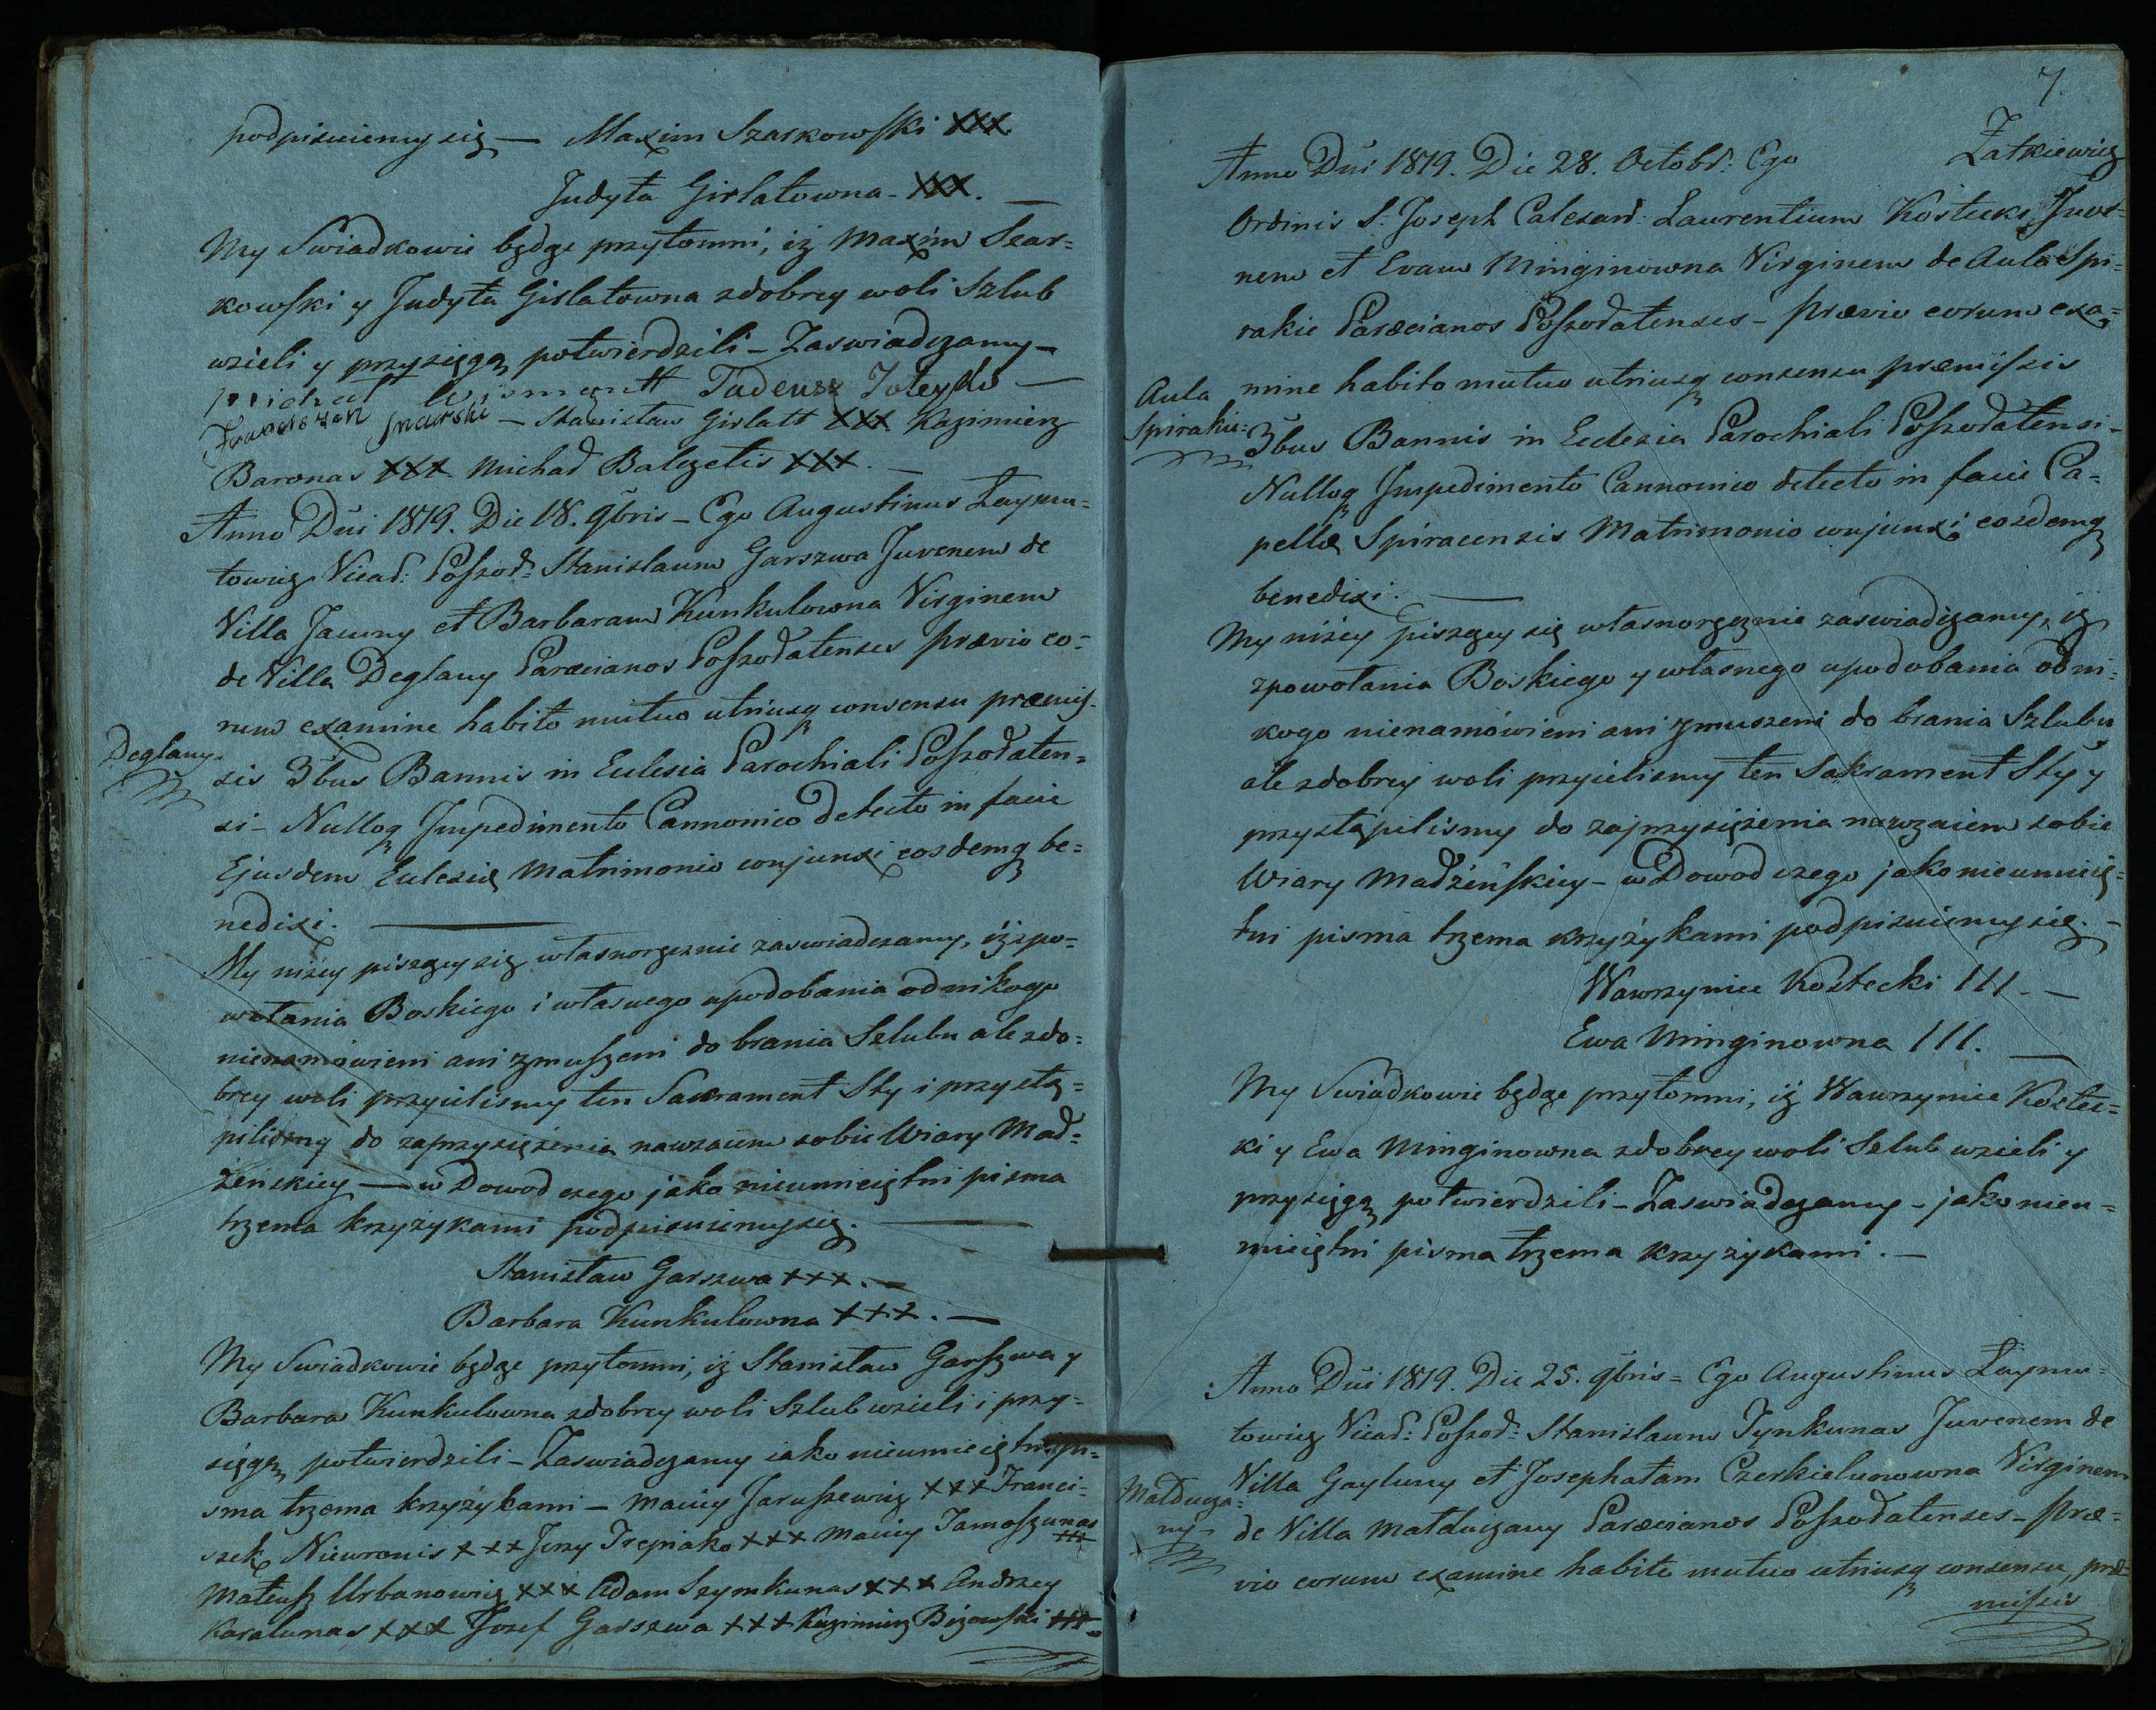 podpisuiemy się — Maxim Szarkowski XXX
Judyta Girlatowna - XXX. —
My Swiadkowie będąc przytomni, iż Maxim Szar=
kowski y Judyta Girlatowna zdobrey woli Szlub
wzieli y przysięgą potwierdzili - Zaswiadczamy -
Michał Wismontt Tadeusz —
Franciszek — Stanisław Girlatt XXX Kazimierz
Baronas XXX Michał Balczetis XXX. —
Anno Dni 1819. Die 18. 9bris - Ego Augustinus Laymu=
towicz Vicar: Poszod: Stanislaum Garszwa Juvenem de
Villa Jacuny et Barbaram Kunkulowna Virginem
de Villa Deglany Paræcianos Poszodatenses prævio eo=
rum examine habito mutuo utriusq consensu præmis-
Deglany.
sis 3bus Bannis in Eclesia Parochiali Poszodaten=
si - Nulloq Impedimento Cannonico detecto in facie
Ejusdem Eclesiæ Matrimonio conjunxi eosdemq be=
nedixi. —
My niżey piszący się własnoręcznie zaswiadczamy, iż zpo=
wołania Boskiego i własnego upodobania odnikogo
nienamówieni ani zmuszeni do brania Szlubu ale zdo=
brey woli przyielismy ten Sacrament Sty i przystą=
pilismy do zaprzysiężenia nawzaiem sobie Wiary Mał=
żenskiey — w Dowod czego jako nieumieiętni pisma
trzema krzyżykami podpisuiemy się. —
Stanisław Garszwa +++. —
Barbara Kunkulowna +++. —
My Swiadkowie będąc przytomni, iż Stanisław Garszwa y
Barbara Kunkulowna zdobrey woli Szlub wzieli i przy=
sięgą potwierdzili - Zaswiadczamy iako nieumieiętni pi=
sma trzema krzyżykami - Maciey Jaruszewicz +++ Franci=
szek Niewronis +++ Jerzy Trepiako +++ Maciey Tamoszunas +++
Mateusz Urbanowicz +++ Adam Szymkunas +++ Andrzey
Karalunas +++ Jozef Garszwa +++ Kazimierz Biżowski +++

7.
Anno Dni 1819. Die 28. Octobr: Ego Łatkiewicz
Ordinis S: Joseph Calesant: Laurentium Kostecki Juve=
nem et Evam Minginowna Virginem de Aula Spi=
rakie Paræcianos Poszodatenses - prævio eorum exa=
mine habito mutuo utriusq consensu præmissis
Aula
Spirakie=
3bus Bannis in Eclesia Parochiali Poszodatensi -
Nulloq Impedimento Cannonico detecto in facie Ca=
pellæ Spiracensis Matrimonio conjunxi eosdemq
benedixi. —
My niżey piszący się własnoręcznie zaswiadczamy, iż
zpowołania Boskiego y własnego upodobania odni=
kogo nienamówieni ani zmuszeni do brania Szlubu
ale zdobrey woli przyielismy ten Sakrament Sty y
przystąpilismy do zaprzysiężenia nawzaiem sobie
Wiary Małżeńskiey - w Dowod czego jako nieumieię=
tni pisma trzema krzyżykami podpisuiemy się. -
Wawrzyniec Kostecki III. —
Ewa Minginowna III. —
My Swiadkowie będąc przytomni, iż Wawrzyniec Kostec=
ki y Ewa Minginowna zdobrey woli Szlub wzieli y
przysięgą potwierdzili - Zaswiadczamy - jako nieu=
mieiętni pisma trzema krzyżykami. —
Anno Dni 1819. Die 25. 9bris = Ego Augustinus Laymu=
towicz Vicar: Poszod: Stanislaum Tynkunas Juvenem de
Villa Gayluny et Josephatam Czerkielunowna Virginem
Małduiza=
ny
de Villa Małduizany Paræcianos Poszodatenses - præ=
vio eorum examine habito mutuo utriusq consensu præ=
missis